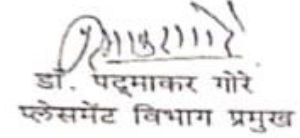 डॉ. पद्माकर गोरे
प्लेसमेंट विभाग प्रमुख